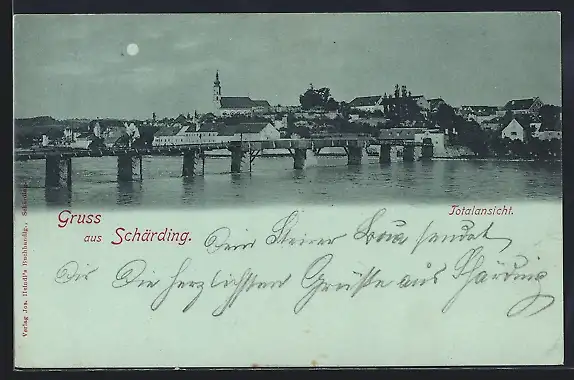 Totalansicht.
Gruss
aus Schärding.
Dein Steirer Bua sendet
Dir Die herzlichsten Grüße aus Schärding
Verlag Jos. Heindl's Buchhandlg., Schärding.